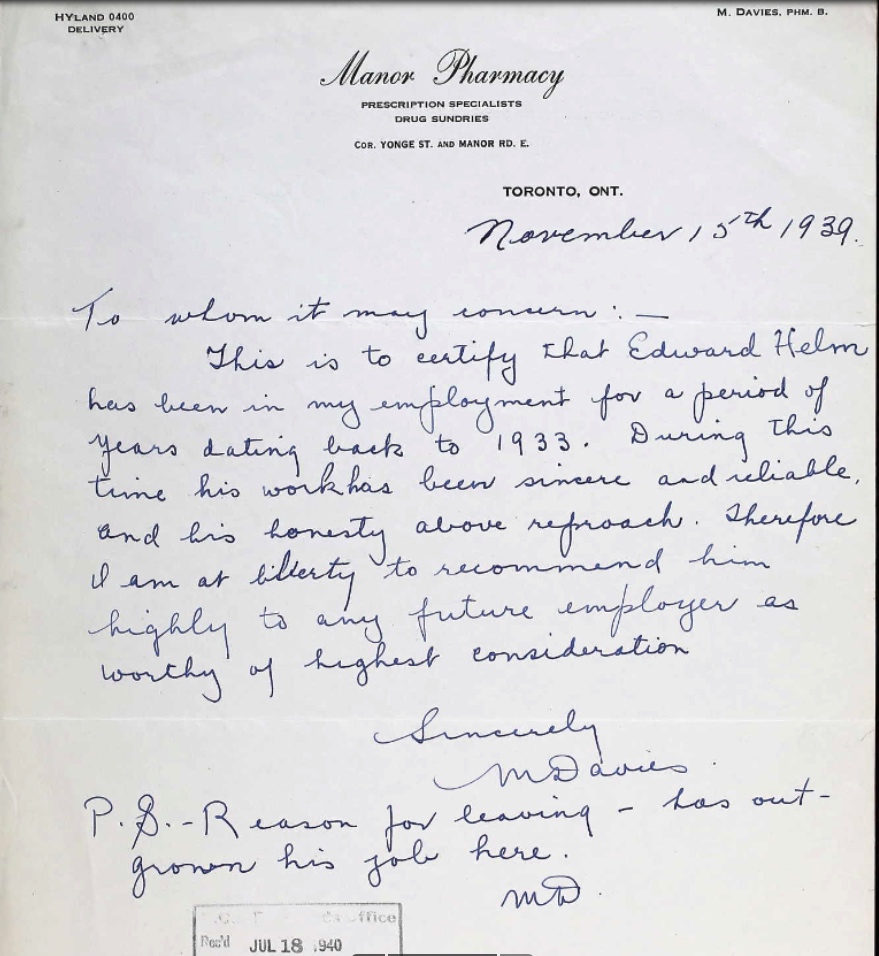 HYLAND 0400
DELIVERY
M. DAVIES, PHM. B.
Manor Pharmacy
PRESCRIPTION SPECIALISTS
DRUG SUNDRIES
COR. YONGE ST. AND MANOR RD. E.
TORONTO, ONT.
November 15th 1939.
To whom it may concern : —
This is to certify that Edward Helm
has been in my employment for a period of
years dating back to 1933. During this
time his work has been sincere and reliable,
and his honesty above reproach. Therefore
I am at liberty to recommend him
highly to any future employer as
worthy of highest consideration
Sincerely
M Davies.
P.S. - Reason for leaving - has out-
grown his job here.
MD.
ffice
Rec'd JUL 18 1940